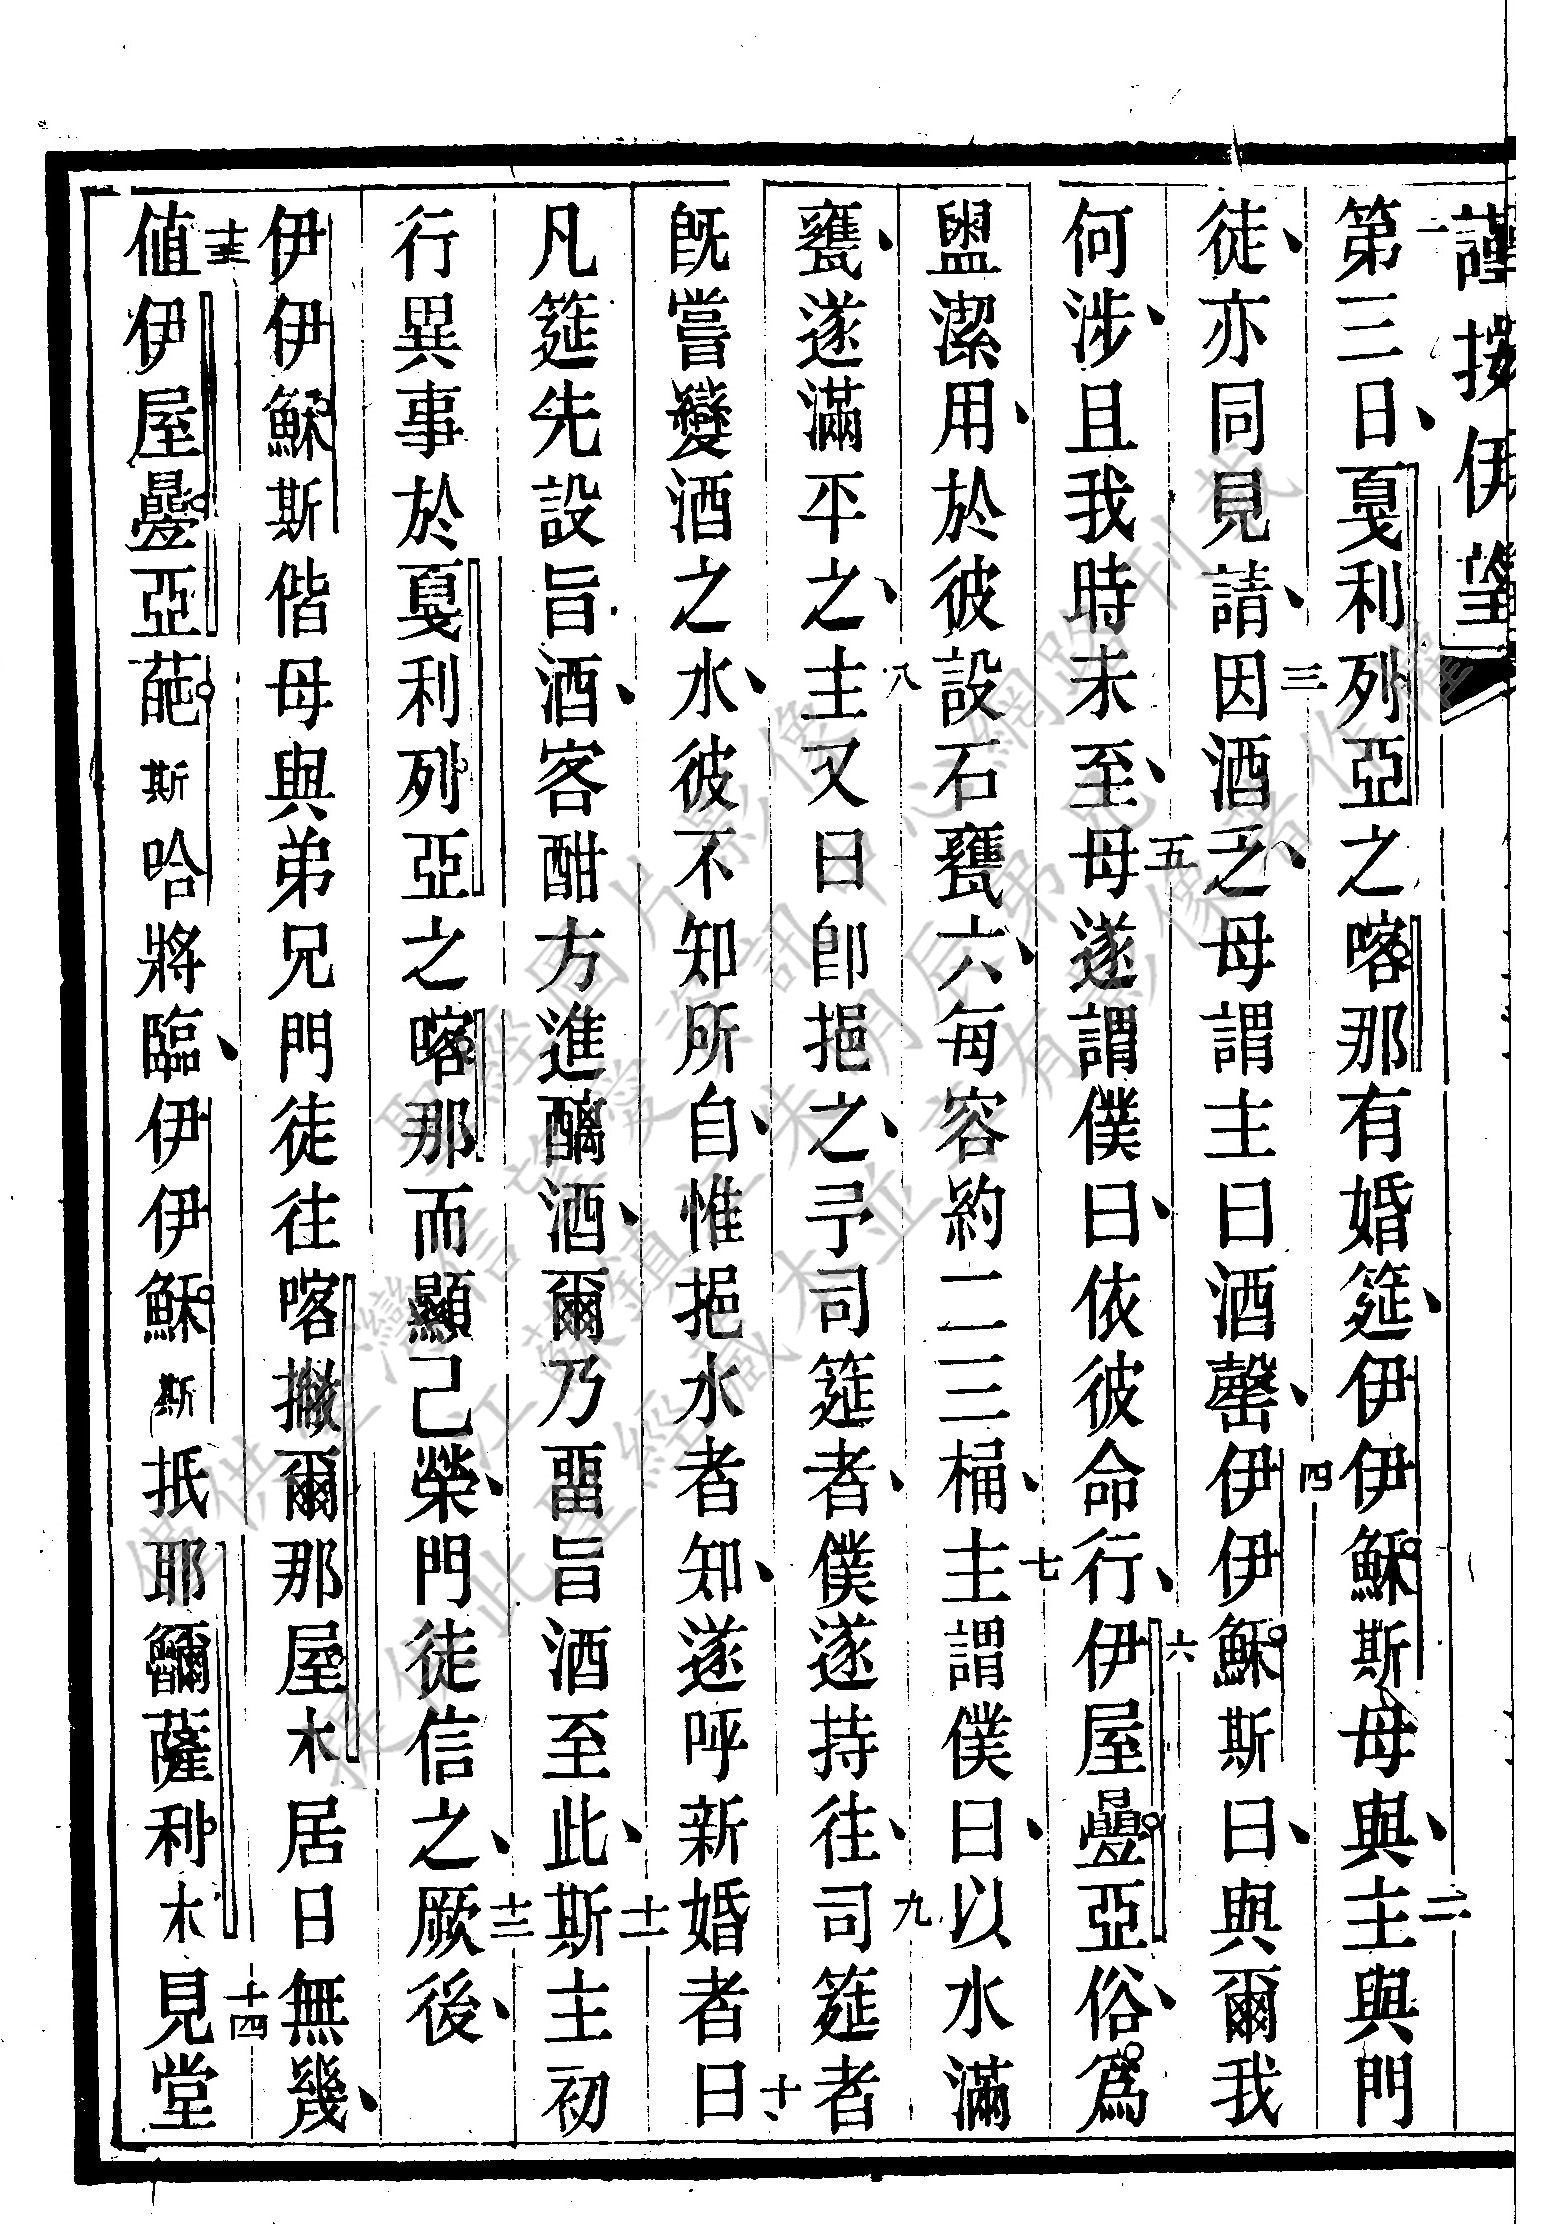 謹按伊望
一第三日、戛利列亞之喀那有婚筵、伊伊穌斯母與、二主與門
徒、亦同見請、三因酒乏、母謂主曰酒罄、四伊伊穌斯曰、與爾我
何涉、且我時未至、五母遂謂僕曰、依彼命行、六伊屋疊亞俗、爲
盥潔用、於彼設石甕六、每容約二三桶、七主謂僕曰、以水滿
甕、遂滿平之、八主又曰卽挹之、予司筵者、僕遂持往、九司筵者
旣嘗變酒之水、彼不知所自、惟挹水者知、遂呼新婚者曰、十
凡筵先設旨酒、客酣方進醨酒、爾乃畱旨酒至此、十一斯主初
行異事於戛利列亞之喀那而顯己榮、門徒信之、十二厥後、
伊伊穌斯偕母與弟兄門徒往喀撇爾那屋木居日無幾、
十三值伊屋疊亞葩斯哈將臨、伊伊穌斯抵耶薩利木十四見堂